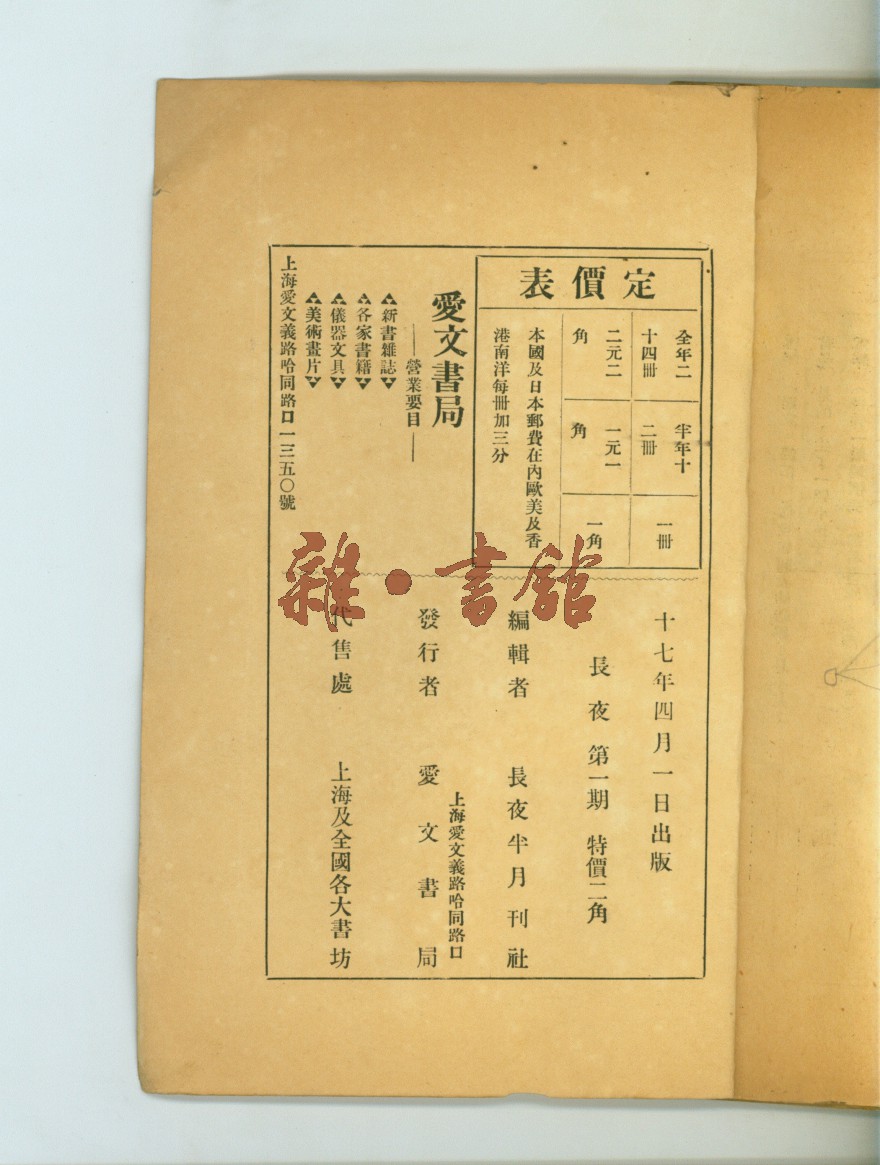 定價表
全年二十四冊
二元二角
半年十二冊
一元一角
一冊
一角
本國及日本郵費在內歐美及香
港南洋每冊加三分
愛文書局
營業要目
新書雜誌
各家書籍
儀器文具
美術畫片
上海愛文義路哈同路口一三五〇號
十七年四月一日出版
長夜 第一期 特價二角
編輯者 長夜半月刊社
上海愛文義路哈同路口
發行者 愛文書局
代售處 上海及全國各大書坊
雜·書館